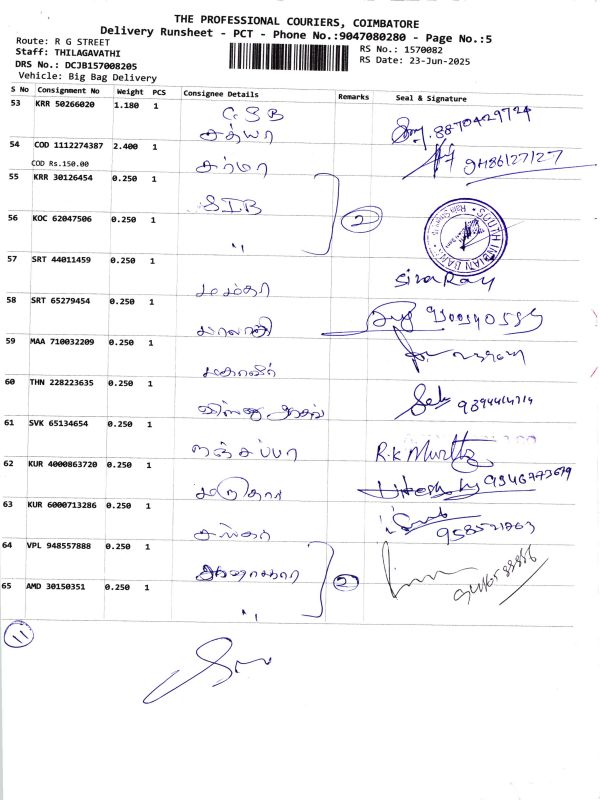 THE PROFESSIONAL COURIERS, COIMBATORE
Delivery Runsheet - PCT - Phone No.:9047080280 - Page No.:5
Route: R G STREET
Staff: THILAGAVATHI
DRS No.: DCJB157008205
Vehicle: Big Bag Delivery
RS No.: 1570082
RS Date: 23-Jun-2025
S No Consignment No Weight PCS Consignee Details Remarks Seal & Signature
53 KRR 50266020 1.180 1
CSB
சத்யா
8870429724
54 COD 1112274387 2.400 1
COD Rs.150.00
சர்மா
55 KRR 30126454 0.250 1
SIB
2
SOUTH INDIAN BANK
56 KOC 62047506 0.250 1
"
57 SRT 44011459 0.250 1
58 SRT 65279454 0.250 1
பாலாஜி
59 MAA 710032209 0.250 1
மகாவீர்
60 THN 228223635 0.250 1
61 SVK 65134654 0.250 1
நஞ்சப்பா
R.K Murthy
62 KUR 4000863720 0.250 1
63 KUR 6000713286 0.250 1
64 VPL 948557888 0.250 1
2
65 AMD 30150351 0.250 1
"
11